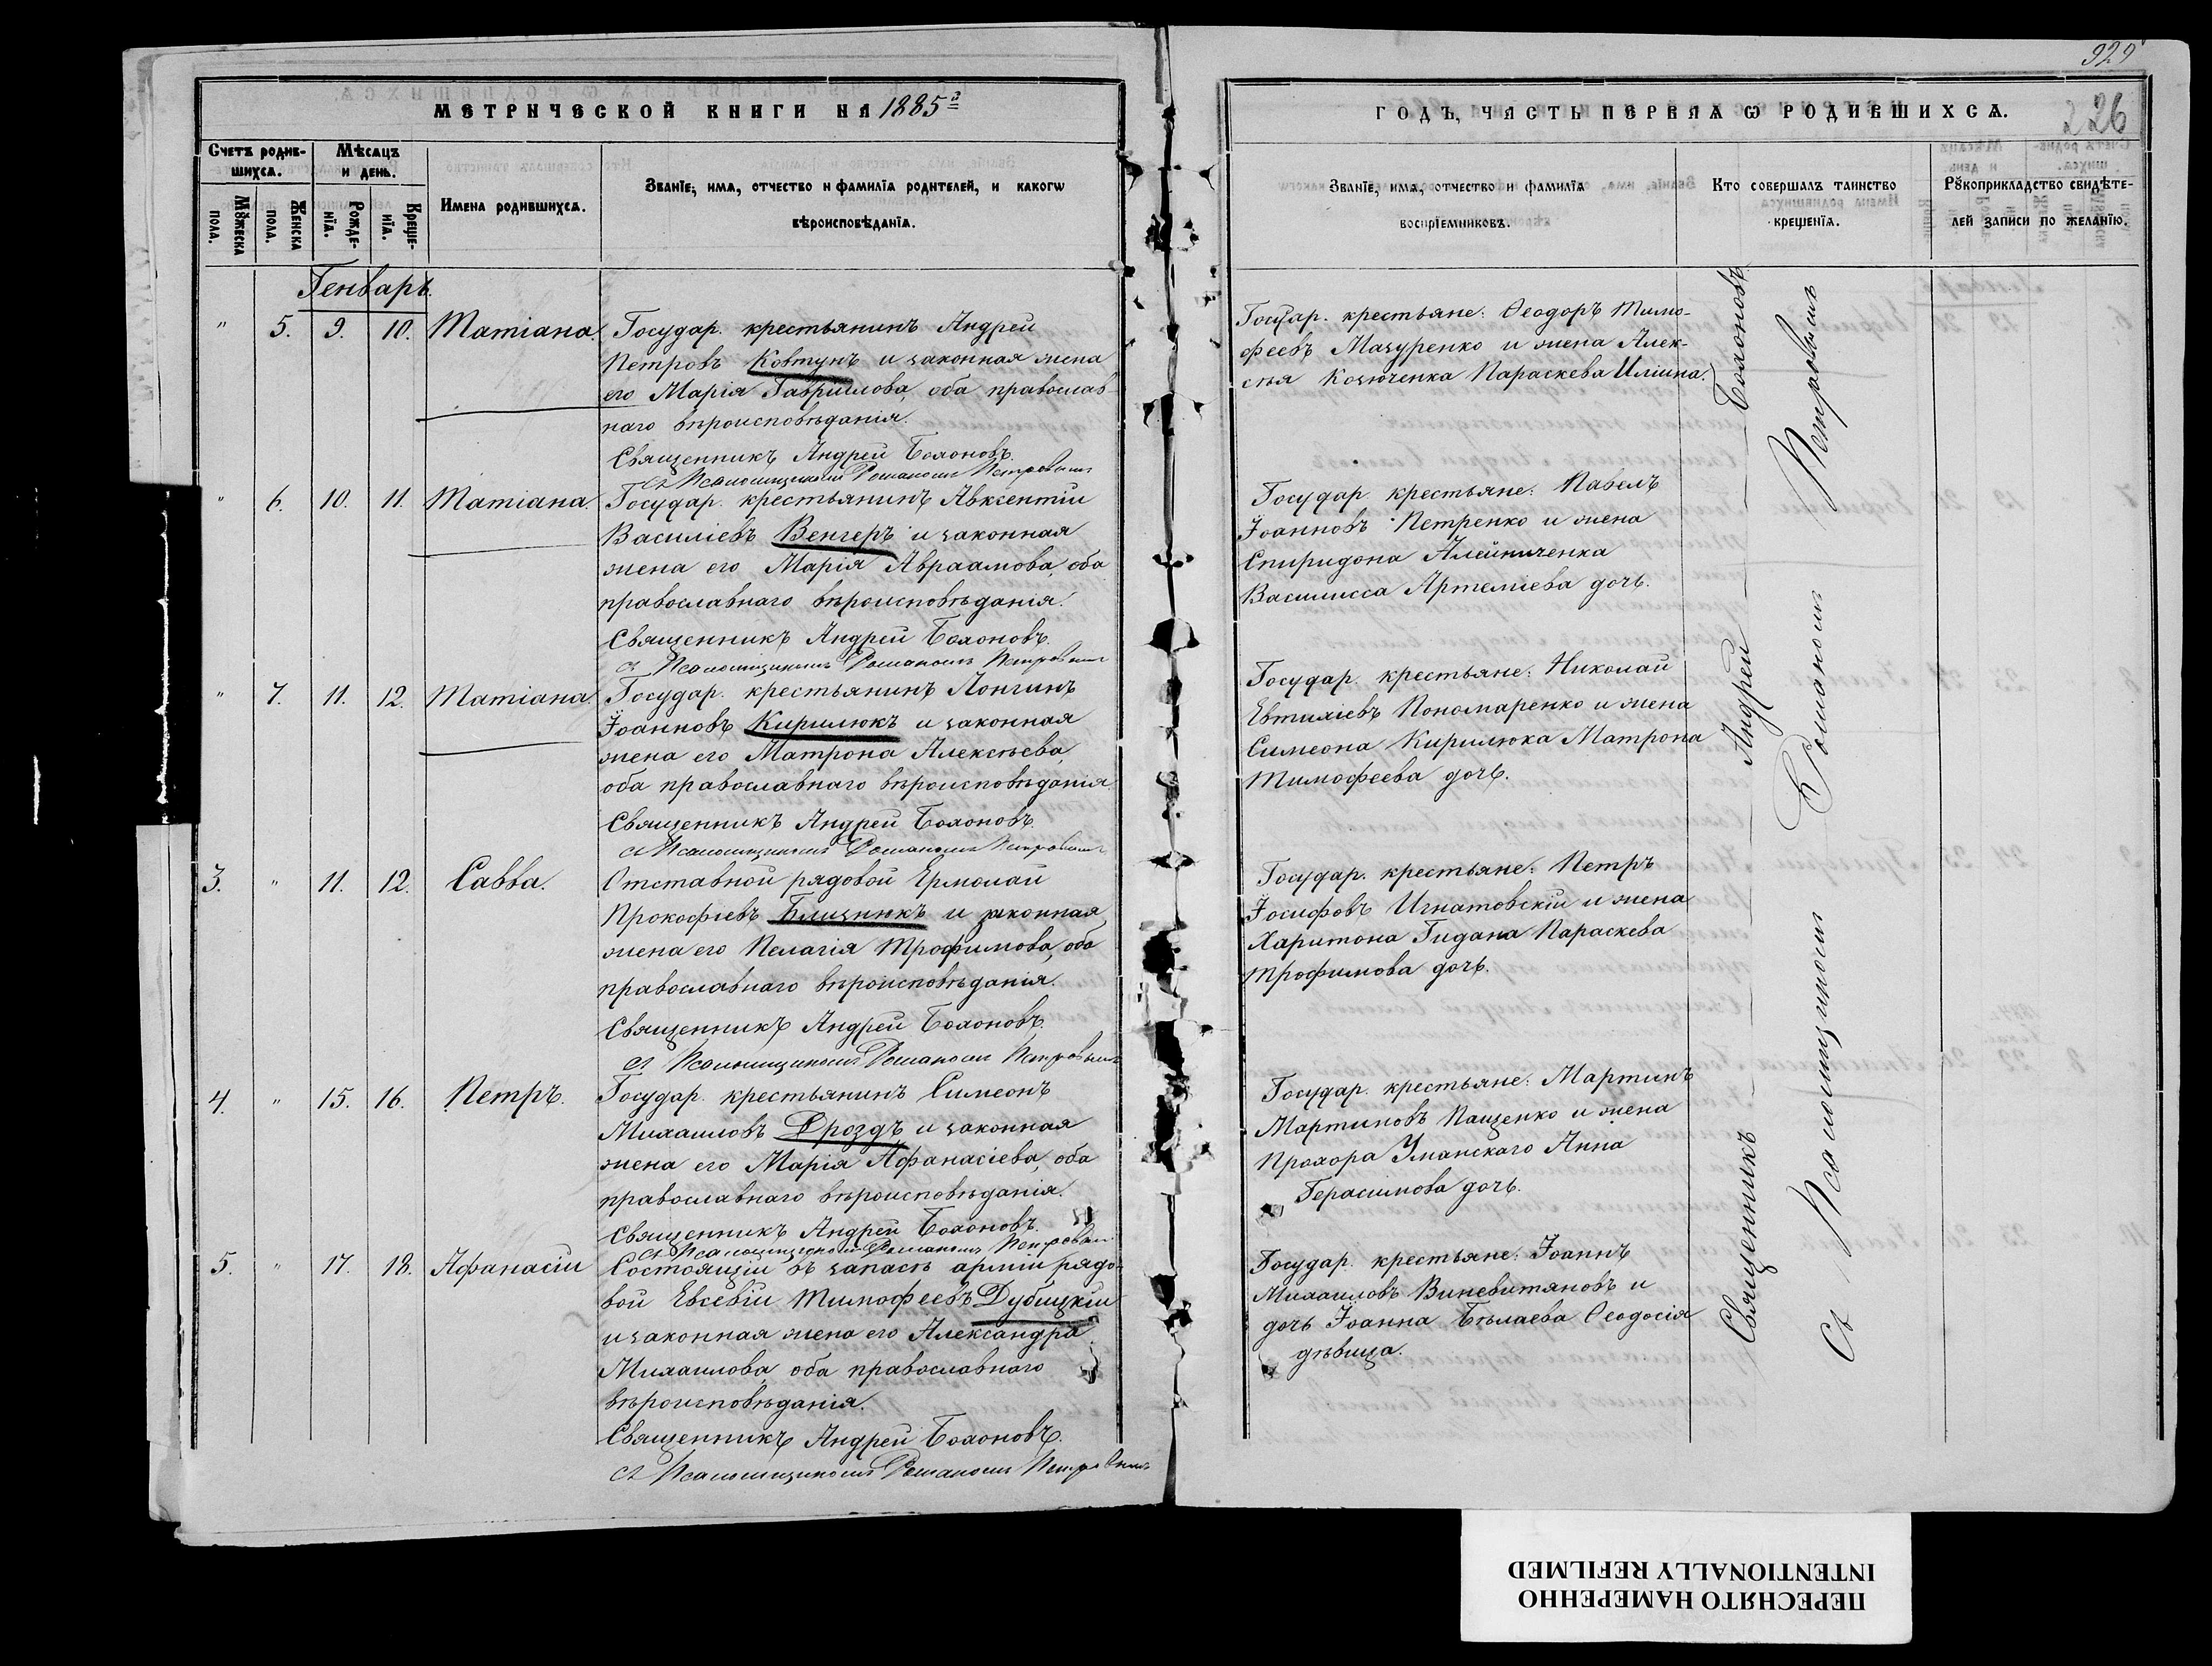 МЕТРИЧЕСКОЙ КНИГИ НА 1885й
Счетъ родившихся.
Мѣсяцъ и день.
Имена родившихся.
Званїе, имя, отчество и фамилїя родителей, и какогѡ
вѣроисповѣданїя.
Мꙋжеска пола.
Женска пола.
Рожденїя.
Крещенїя.
Генварь.
" 5. 9. 10. Татіана. Государ. крестьянинъ Андрей
Петровъ Ковтунъ и законная жена
его Марія Гавріилова, оба православ
наго вѣроисповѣданія.
Священникъ Андрей Болоновъ.
съ Псаломщикомъ Романомъ Петровымъ
" 6. 10. 11. Татіана. Государ. крестьянинъ Авксентій
Василіевъ Венгеръ и законная
жена его Марія Авраамова, оба
православнаго вѣроисповѣданія.
Священникъ Андрей Болоновъ.
съ Псаломщикомъ Романомъ Петровымъ
" 7. 11. 12. Татіана. Государ. крестьянинъ Лонгинъ
Іоанновъ Кирилюкъ и законная
жена его Матрона Алексѣева,
оба православнаго вѣроисповѣданія.
Священникъ Андрей Болоновъ.
съ Псаломщикомъ Романомъ Петровымъ
3. " 11. 12. Савва. Отставной рядовой Ермолай
Прокофіевъ Близнюкъ и законная
жена его Пелагія Трофимова, оба
православнаго вѣроисповѣданія.
Священникъ Андрей Болоновъ.
съ Псаломщикомъ Романомъ Петровымъ
4. " 15. 16. Петръ. Государ. крестьянинъ Симеонъ
Михаиловъ Дроздъ и законная
жена его Марія Афанасіева, оба
православнаго вѣроисповѣданія.
Священникъ Андрей Болоновъ.
съ Псаломщикомъ Романомъ Петровымъ
5. " 17. 18. Афанасій Состоящій въ запасѣ арміи рядо-
вой Евсевій Тимофеевъ Дубицкій
и законная жена его Александра
Михаилова, оба православнаго
вѣроисповѣданія.
Священникъ Андрей Болоновъ.
съ Псаломщикомъ Романомъ Петровымъ
329
ГОДЪ, ЧАСТЬ ПЕРВАЯ Ѡ РОДИВШИХСѦ.
226
Званїе, имя, отчество и фамилїя
воспрїемниковъ.
Кто совершалъ таинство
крещенїя.
Рꙋкоприкладство свидѣте-
лей записи по желанїю.
Государ. крестьяне: Ѳеодоръ Тимо-
феевъ Мазуренко и жена Алек-
сѣя Козюченка Параскева Иліина.
Государ. крестьяне: Павелъ
Іоанновъ Петренко и жена
Спиридона Алейниченка
Василисса Артеміева дочь.
Государ. крестьяне: Николай
Евтихіевъ Пономаренко и жена
Симеона Кирилюка Матрона
Тимофеева дочь.
Государ. крестьяне: Петръ
Іосифовъ Игнатовскій и жена
Харитона Гидана Параскева
Трофимова дочь.
Государ. крестьяне: Мартинъ
Мартиновъ Пащенко и жена
Прохора Уманскаго Анна
Герасимова дочь.
Государ. крестьяне: Іоаннъ
Михаиловъ Виневитяновъ и
дочь Іоанна Бѣлаева Ѳеодосія
дѣвица.
Священникъ Андрей Болоновъ
Съ Псаломщикомъ Романомъ Петровымъ
ПЕРЕСНЯТО НАМЕРЕННО
INTENTIONALLY REFILMED